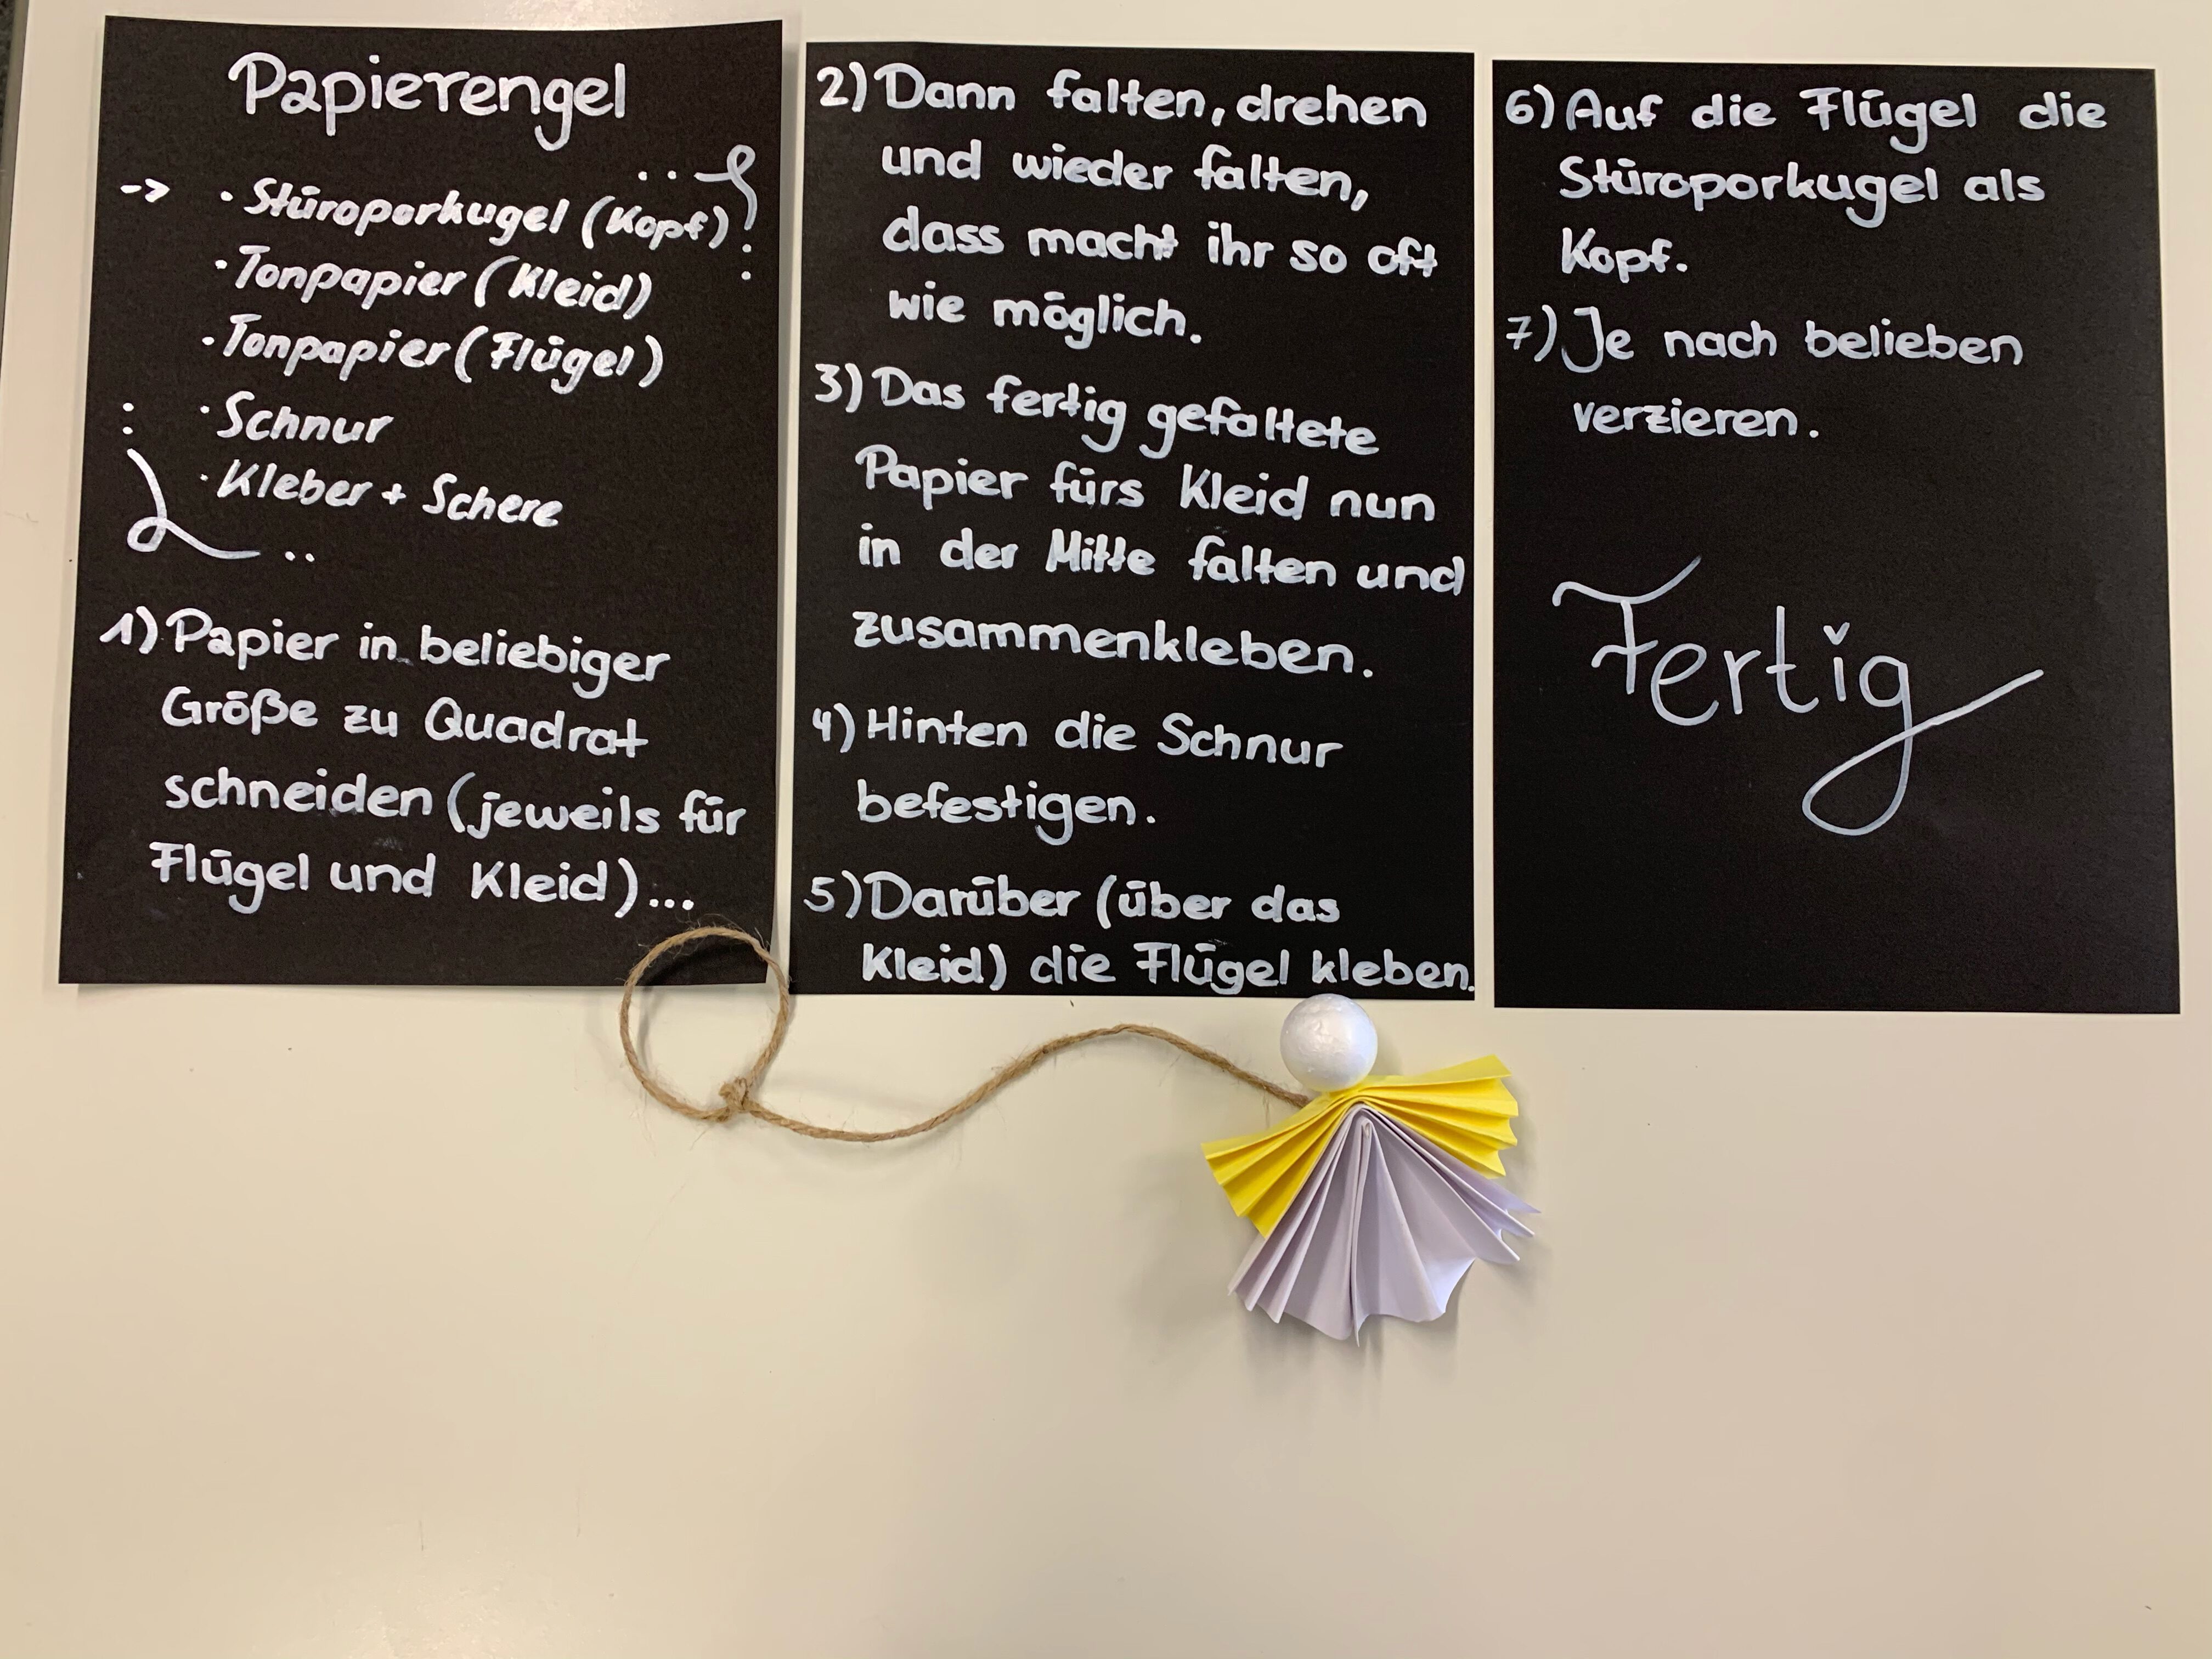 Papierengel
-> · Stüroporkugel (Kopf)
· Tonpapier (Kleid)
· Tonpapier (Flügel)
· Schnur
· Kleber + Schere
1) Papier in beliebiger
Größe zu Quadrat
schneiden (jeweils für
Flügel und Kleid)...
2) Dann falten, drehen
und wieder falten,
dass macht ihr so oft
wie möglich.
3) Das fertig gefaltete
Papier fürs Kleid nun
in der Mitte falten und
zusammenkleben.
4) Hinten die Schnur
befestigen.
5) Darüber (über das
Kleid) die Flügel kleben.
6) Auf die Flügel die
Stüroporkugel als
Kopf.
7) Je nach belieben
verzieren.
Fertig